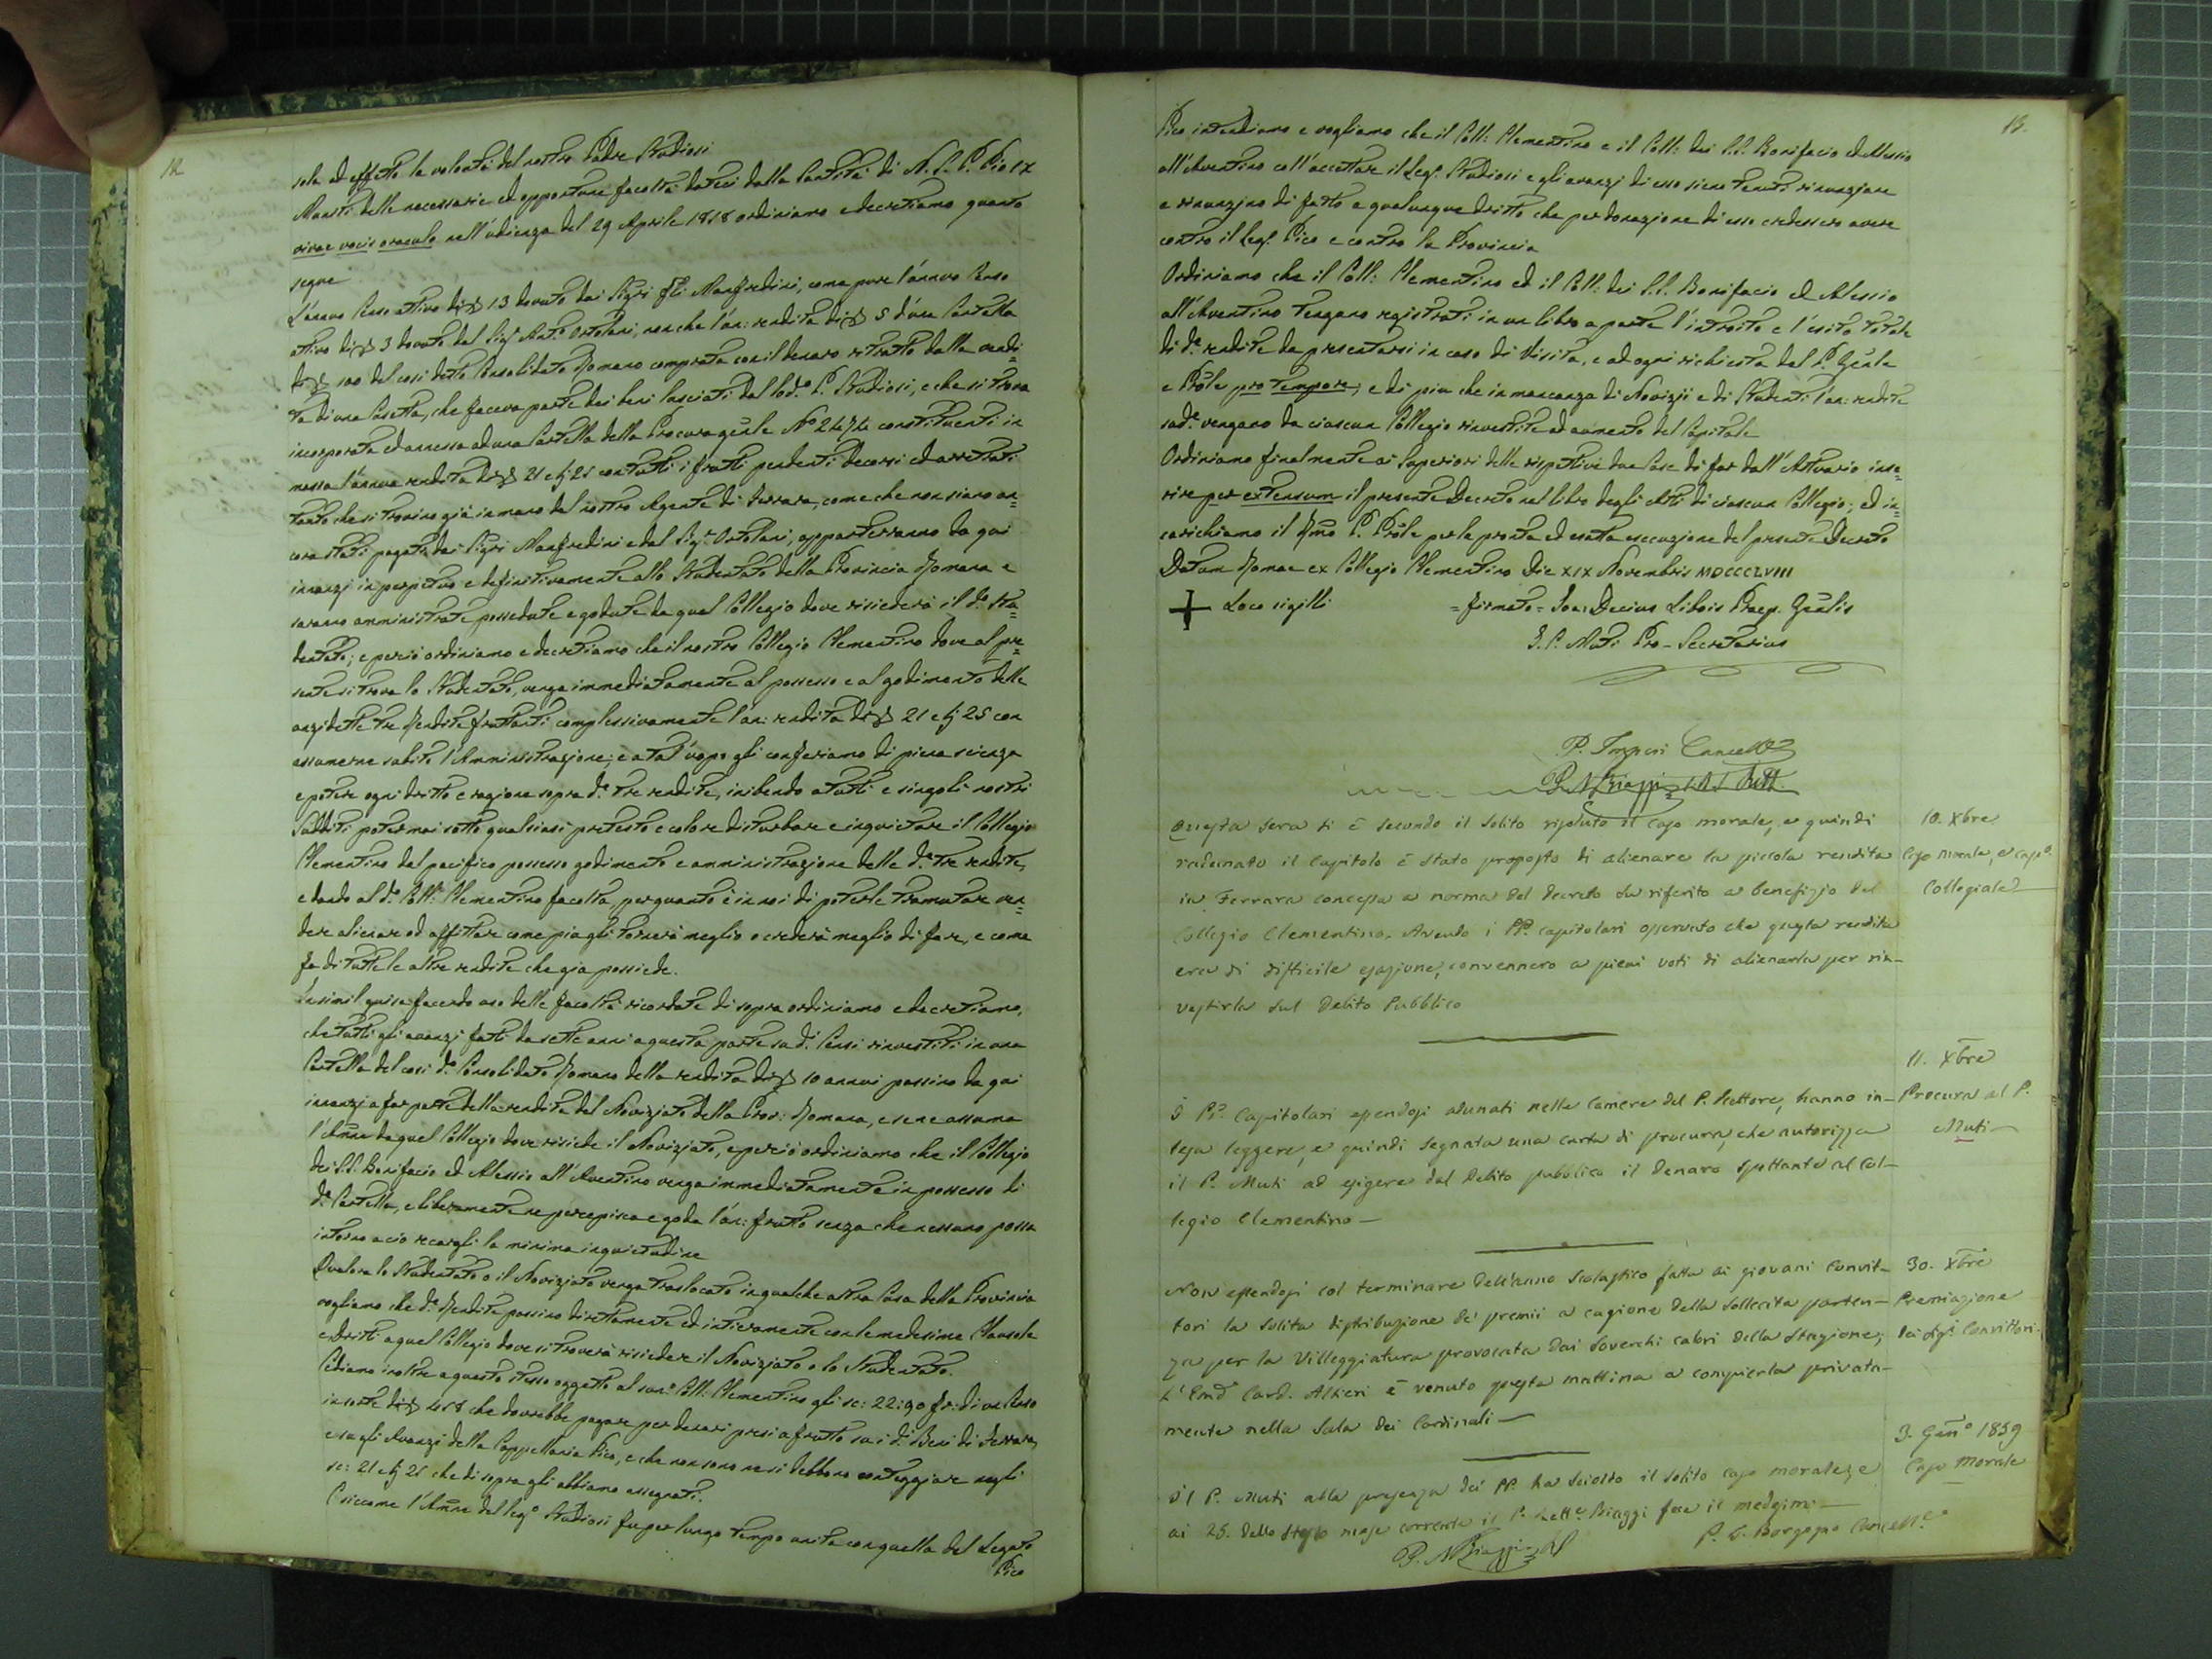 12.
solo ed effetto la volontà del nostro Padre Studiosi
Muniti delle necessarie ed opportune facoltà dateci dalla Santità di N. S. P. Pio IX
vivae vocis oraculo nell'udienza del 29 Aprile 1858 ordiniamo e decretiamo quanto
segue
L'annuo Censo attivo di 13 dovuto dai Sigri Manfredini, come pure l'annuo Censo
attivo di 3 dovuto dal Sigr Anto. Ortolani, non che l'an: rendita di 5 d'una Cartella
di 100 del così detto Consolidato Romano comprata con il denaro ritratto dalla vendi=
ta di una Casetta, che faceva parte dei beni lasciati dal lodo. P. Studiosi, e che si trova
incorporata ed annessa ad una Cartella della Procura genle No 2474 constituenti in
massa l'annua rendita di 21 e bj 25 con tutti i frutti pendenti decorsi ed arretrati
tanto che si trovino già in mano del nostro Agente di Ferrara, come che non siano an=
cora stati pagati dai Sigri Manfredini e dal Sigr. Ortolani, apparterranno da qui
innanzi in perpetuo e definitivamente allo Studentato della Provincia Romana e
saranno amministrate possedute e godute da quel Collegio dove risiederà il do. Stu=
dentato; e perciò ordiniamo e decretiamo che il nostro Collegio Clementino dove al pre=
sente si trova lo Studentato, venga immediatamente al possesso e al godimento delle
anzidette tre Rendite fruttanti complessivamente l'an: rendita di 21 e bj 25 con
assumerne subito l'Amministrazione; e a tal'uopo gli conferiamo di piena scienza
e potere ogni dritto e ragione sopra de. tre rendite, inibendo a tutti e singoli nostri
Sudditi poter mai sotto qualsiasi pretesto e colore disturbare e inquietare il Collegio
Clementino dal pacifico possesso godimento e amministrazione delle de. tre rendite,
e dando al do. Coll: Clementino facoltà, per quanto è in noi di poterle tramutare ven=
dere alienare od affittare come più gli tornerà meglio o crederà meglio di fare, e come
fa di tutte le altre rendite che già possiede.
In simil guisa facendo uso delle facoltà ricordate di sopra ordiniamo e decretiamo,
che tutti gli avanzi fatti da sette anni a questa parte su di. Censi rinvestiti in una
Cartella del così do. Consolidato Romano della rendita di 10 annui passino da qui
innanzi a far parte della rendita del Noviziato della Prov: Romana, e se ne assuma
l'Amne da quel Collegio dove risiede il Noviziato, e perciò ordiniamo che il Collegio
dei S.S. Bonifacio ed Alessio all'Aventino venga immediatamente in possesso di
da. Cartella, e liberamente ne percepisca e goda l'an: frutto senza che nessuno possa
intorno a ciò recargli la minima inquietudine
Qualora lo Studentato o il Noviziato venga traslocato in qualche altra Casa della Provincia
vogliamo che de. Rendite passino direttamente ed intieramente con le medesime Clausole
e Dritti a quel Collegio dove si troverà risiedere il Noviziato o lo Studentato.
Cediamo inoltre a questo stesso oggetto al Coll: Clementino gli sc: 22:90 fr: di un Censo
in sorte di 458 che dovrebbe pagare per denari presi a frutto su i di. Beni di Ferrara,
e su gli Avanzi della Cappellania Pico, e che non sono ne si debbono conteggiare negli
sc: 21 e bj 25 che di sopra gli abbiamo assegnati.
E siccome l'Amne del Lego. Studiosi fu per lungo tempo unita con quella del Legato
Pico
13.
Pico intendiamo e vogliamo che il Coll: Clementino e il Coll: dei S.S. Bonifacio ed Alessio
all'Aventino coll'accettare il Leg. Studiosi e gli avanzi di esso sieno tenuti rinunziare
e rinunzino di fatto a qualunque dritto che per donazione di esso credessero avere
contro il Leg. Pico e contro la Provincia
Ordiniamo che il Coll: Clementino ed il Coll: dei S.S. Bonifacio ed Alessio
all'Aventino tengano registrati in un libro a parte l'introito e l'esito totale
di de. rendite da presentarsi in caso di Visita, e ad ogni richiesta del P. Genle
e Prôle pro tempore; e di più che in mancanza di Novizii e di Studenti l'an: rendite
sude. vengano da ciascun Collegio rinvestite ad aumento del Capitale
Ordiniamo finalmente ai Superiori delle rispettive due Case di far dall'Attuario inse=
rire per extensum il presente Decreto nel libro degli Atti di ciascun Collegio; ed in=
carichiamo il Rmo P. Prôle per la pronta ed esatta esecuzione del presente Decreto
Datum Romae ex Collegio Clementino Die XIX Novembris MDCCCLVIII
+ Loco sigilli = firmato = Ioan: Decius Libois Praep. Gnlis
I. C. Muti Pro-Secretarius
P. Imperi Cancelle
P. N Biaggi Rett.
Questa sera si è secondo il solito risoluto il caso morale, e quindi
radunato il Capitolo è stato proposto di alienare la piccola rendita
in Ferrara concessa a norma del decreto su riferito a benefizio del
Collegio Clementino. Avendo i PP. capitolari osservato che questa rendita
era di difficile esazione, convennero a pieni voti di alienarla per rin-
vestirla sul Debito Pubblico
10. Xbre
Caso morale, e capo.
Collegiale
I PP. Capitolari essendosi adunati nella Camera del P. Rettore, hanno in-
teso leggere, e quindi segnata una carta di procura, che autorizza
il P. Muti ad esigere dal Debito pubblico il denaro spettante al Col-
legio Clementino -
11. Xbre
Procura al P.
Muti -
Non essendosi col terminare dell'anno scolastico fatta ai giovani Convit-
tori la solita distribuzione de' premii a cagione della sollecita parten-
za per la Villeggiatura provocata dai soverchi calori della Stagione,
L'Emo Card. Altieri è venuto questa mattina a compierla privata-
mente nella Sala dei Cardinali -
30. Xbre
Premiazione
dei Sigi Convittori.
Il P. Muti alla presenza dei PP. ha sciolto il solito caso morale, e
ai 25. dello stesso mese corrente il P. Rette. Biaggi fece il medesimo -
3. Genno 1859
Caso Morale
P. G. Borgogno Cancelle.
P. N Biaggi